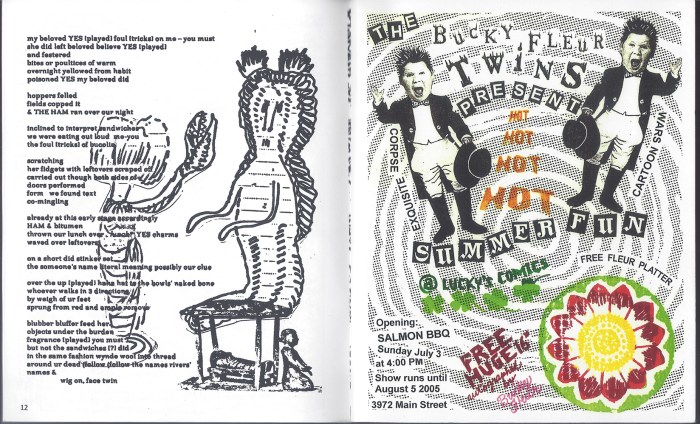 my beloved YES (played) foul (tricks) on me – you must
she did left beloved believe YES (played)
and festered
bites or poultices of warm
overnight yellowed from habit
poisoned YES my beloved did
hoppers felled
fields copped it
& THE HAM ran over our night
inclined to interpret sandwiches
we were eating out loud me-you
the foul (tricks) of bucolia
scratching
her fidgets with leftovers scraped off
carried out though both sides of
doors performed
form we found text
co-mingling
already at this early stage accordingly
HAM & bitumen
thrown our lunch over lunch YES charms
waved over leftovers
on a short did stinker set
the someone's name literal meaning possibly our clue
over the up (played) haha hat to the bowls' naked bone
whoever walks in 3 directions
by weigh of ur feet
sprung from red and ample remove
blubber bluffer feed her
objects under the burden
fragrance (played) you must
but not the sandwiches (?) did
in the same fashion wynde wool into thread
around ur dead follow follow the names rivers'
names &
wig on, face twin
12
THE
BUCKY FLEUR
TWINS
PRESENT
HOT
HOT
HOT
HOT
EXQUISITE CORPSE
CARTOON WARS
SUMMER FUN
@ LUCKY'S COMICS
FREE FLEUR PLATTER
Opening:
SALMON BBQ
Sunday July 3
at 4:00 PM
Show runs until
August 5 2005
3972 Main Street
FREE
HUGE